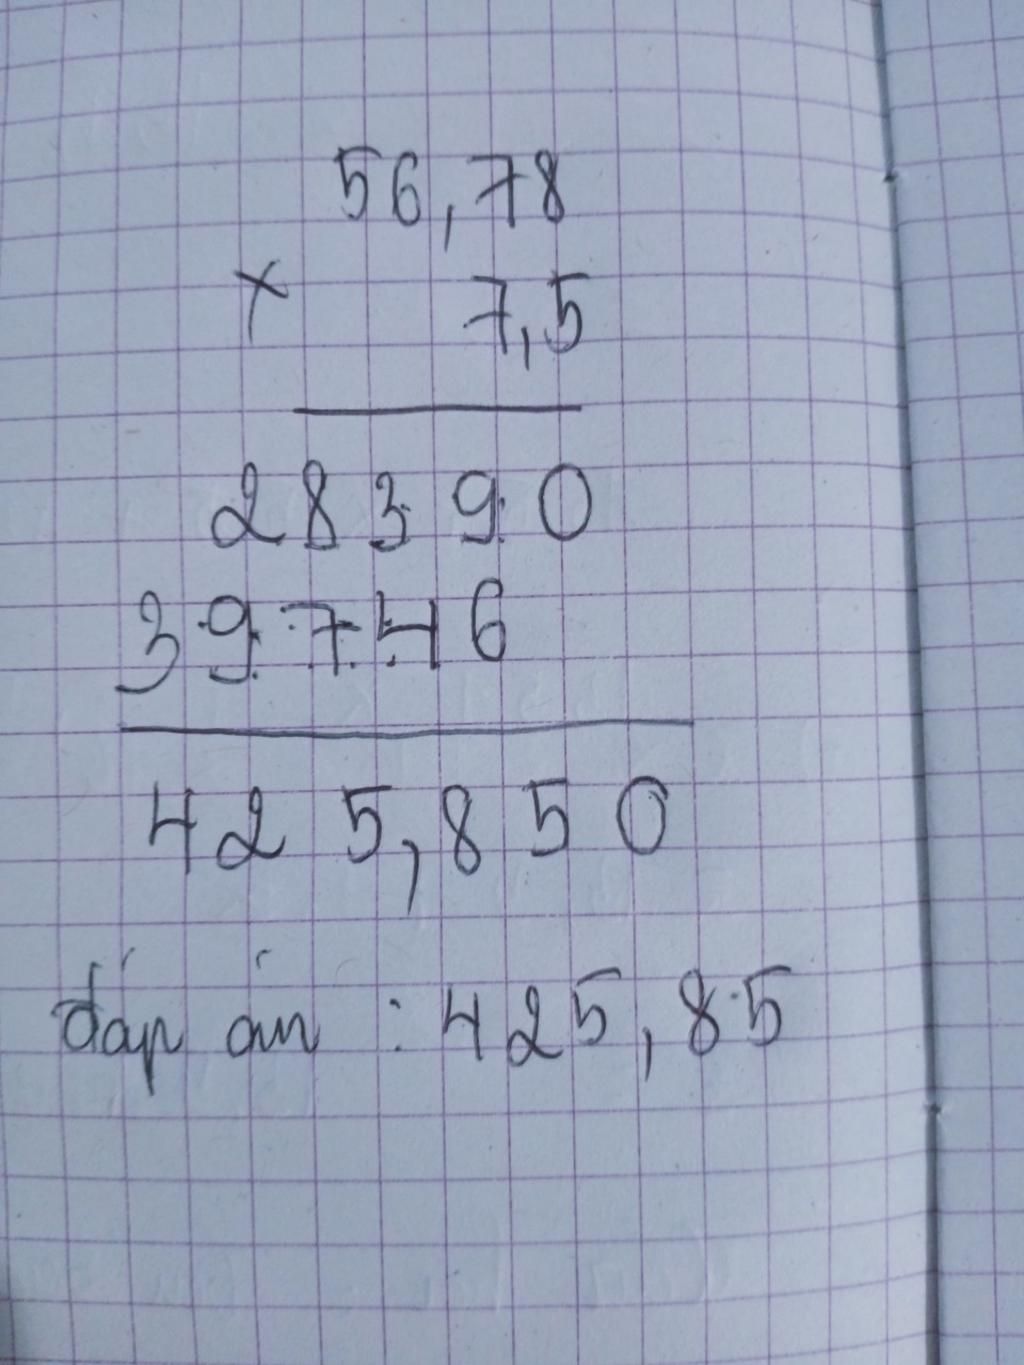 56,78
× 7,5
28390
39746
425,850
đáp án : 425,85